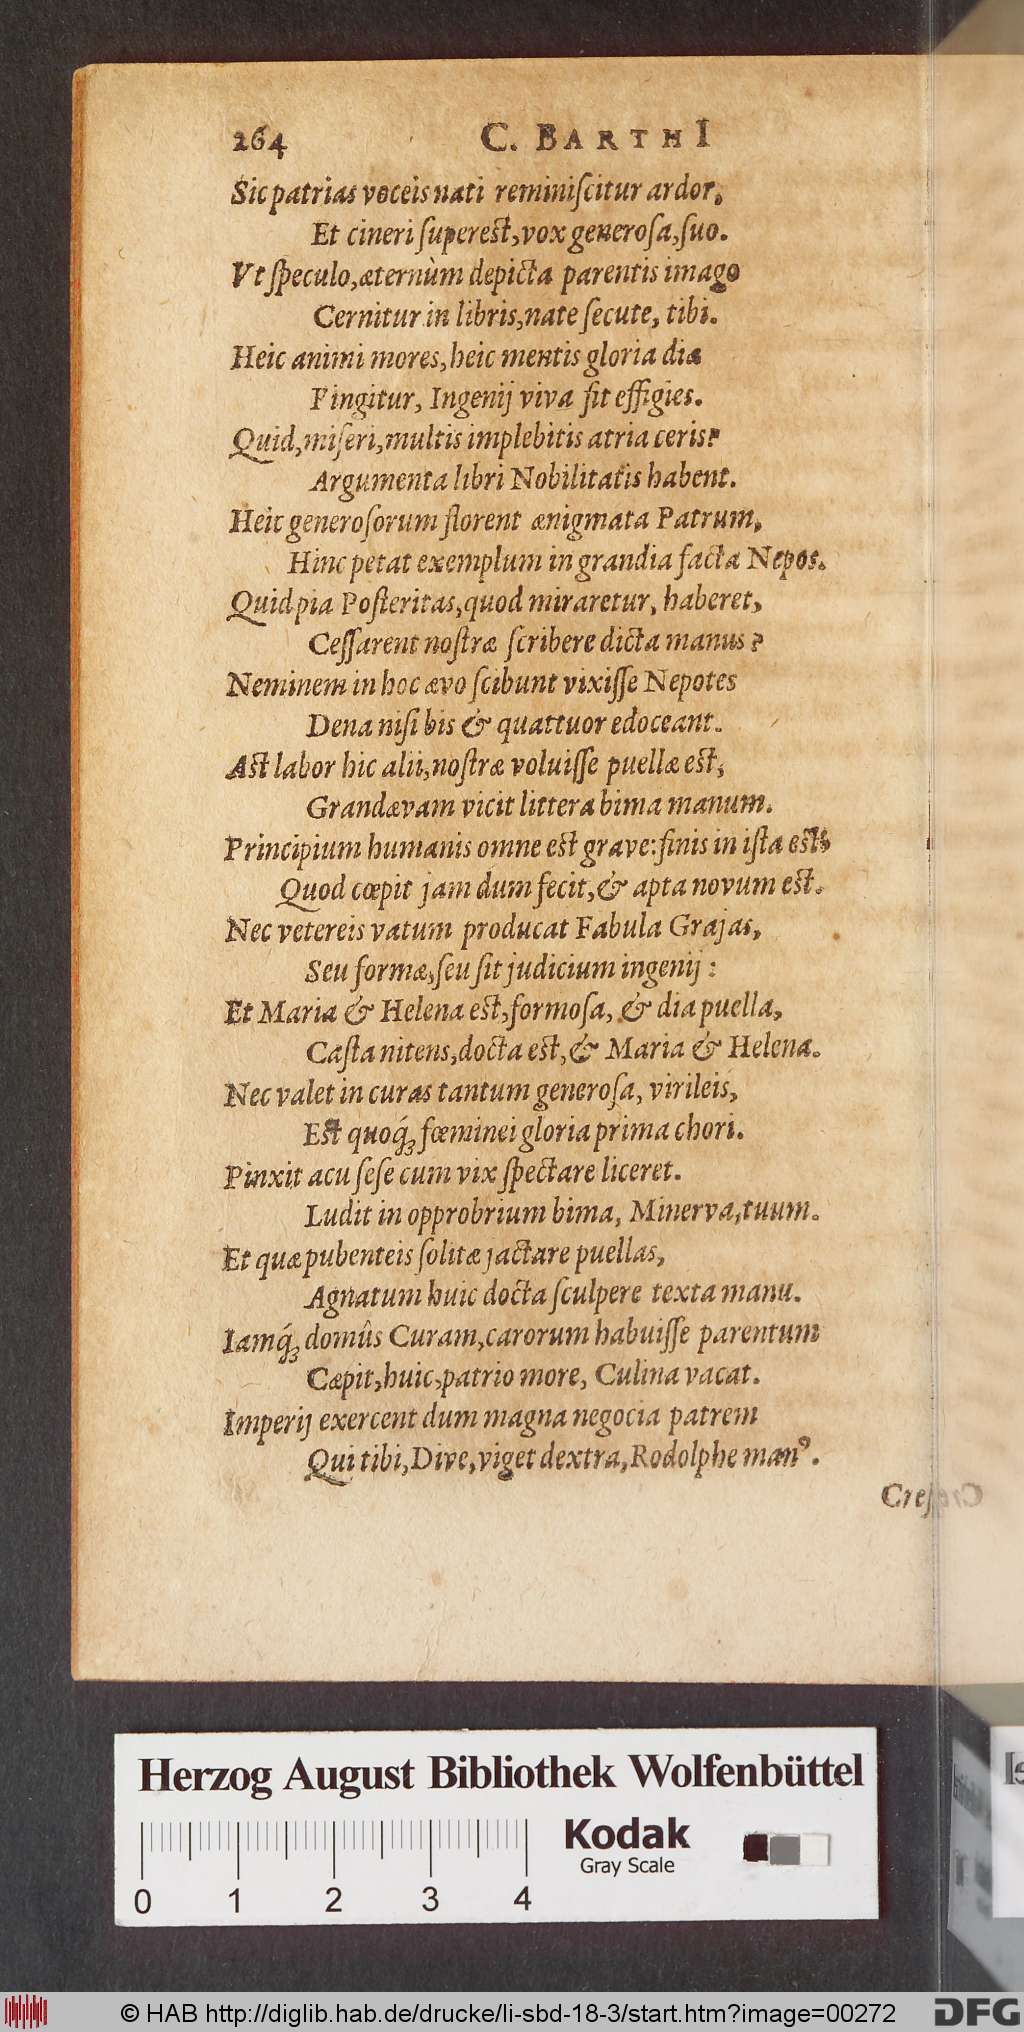 264 C. BARTHI
Sic patrias voceis nati reminiſcitur ardor,
Et cineri ſupereſt, vox generoſa, ſuo.
Vt ſpeculo, æternùm depicta parentis imago
Cernitur in libris, nate ſecute, tibi.
Heic animi mores, heic mentis gloria dia
Fingitur, Ingenij viva fit effigies.
Quid, miſeri, multis implebitis atria ceris?
Argumenta libri Nobilitatis habent.
Heic generoſorum florent ænigmata Patrum,
Hinc petat exemplum in grandia facta Nepos.
Quid pia Poſteritas, quod miraretur, haberet,
Ceſſarent noſtræ ſcribere dicta manus?
Neminem in hoc ævo ſcibunt vixiſſe Nepotes
Dena niſi bis & quattuor edoceant.
Aſt labor hic alii, noſtræ voluiſſe puellæ eſt,
Grandævam vicit littera bima manum.
Principium humanis omne eſt grave: finis in iſta eſt,
Quod cœpit jam dum fecit, & apta novum eſt.
Nec vetereis vatum producat Fabula Grajas,
Seu formæ, ſeu ſit judicium ingenij:
Et Maria & Helena eſt, formoſa, & dia puella,
Caſta nitens, docta eſt, & Maria & Helena.
Nec valet in curas tantum generoſa, virileis,
Eſt quoq́; fœminei gloria prima chori.
Pinxit acu ſeſe cum vix ſpectare liceret.
Ludit in opprobrium bima, Minerva, tuum.
Et quæ pubenteis ſolitæ jactare puellas,
Agnatum huic docta ſculpere texta manu.
Iamq́; domûs Curam, carorum habuiſſe parentum
Cæpit, huic, patrio more, Culina vacat.
Imperij exercent dum magna negocia patrem
Qui tibi, Dive, viget dextra, Rodolphe manꝰ.
Creſ
Herzog August Bibliothek Wolfenbüttel
Kodak
Gray Scale
0 1 2 3 4
© HAB http://diglib.hab.de/drucke/li-sbd-18-3/start.htm?image=00272
DFG